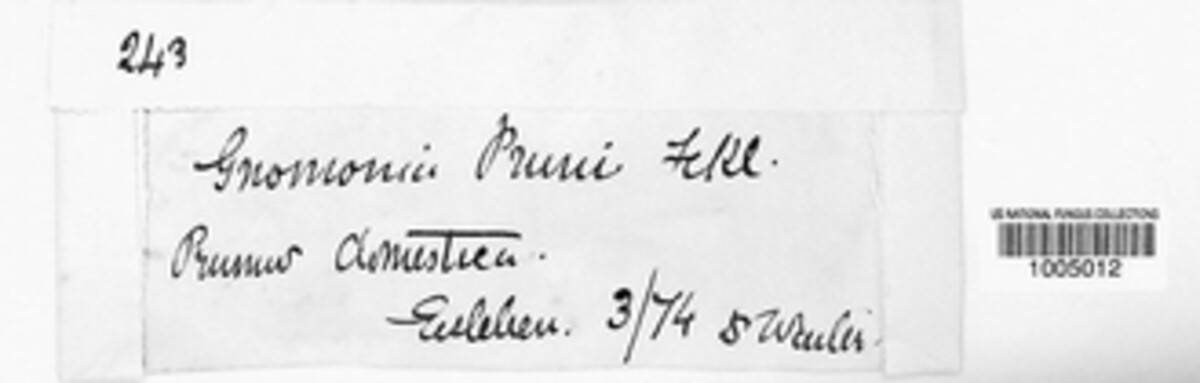 243
Gnomonia Pruni Fckl.
Prunus domestica.
Eisleben. 3/74
US NATIONAL FUNGUS COLLECTIONS
1005012